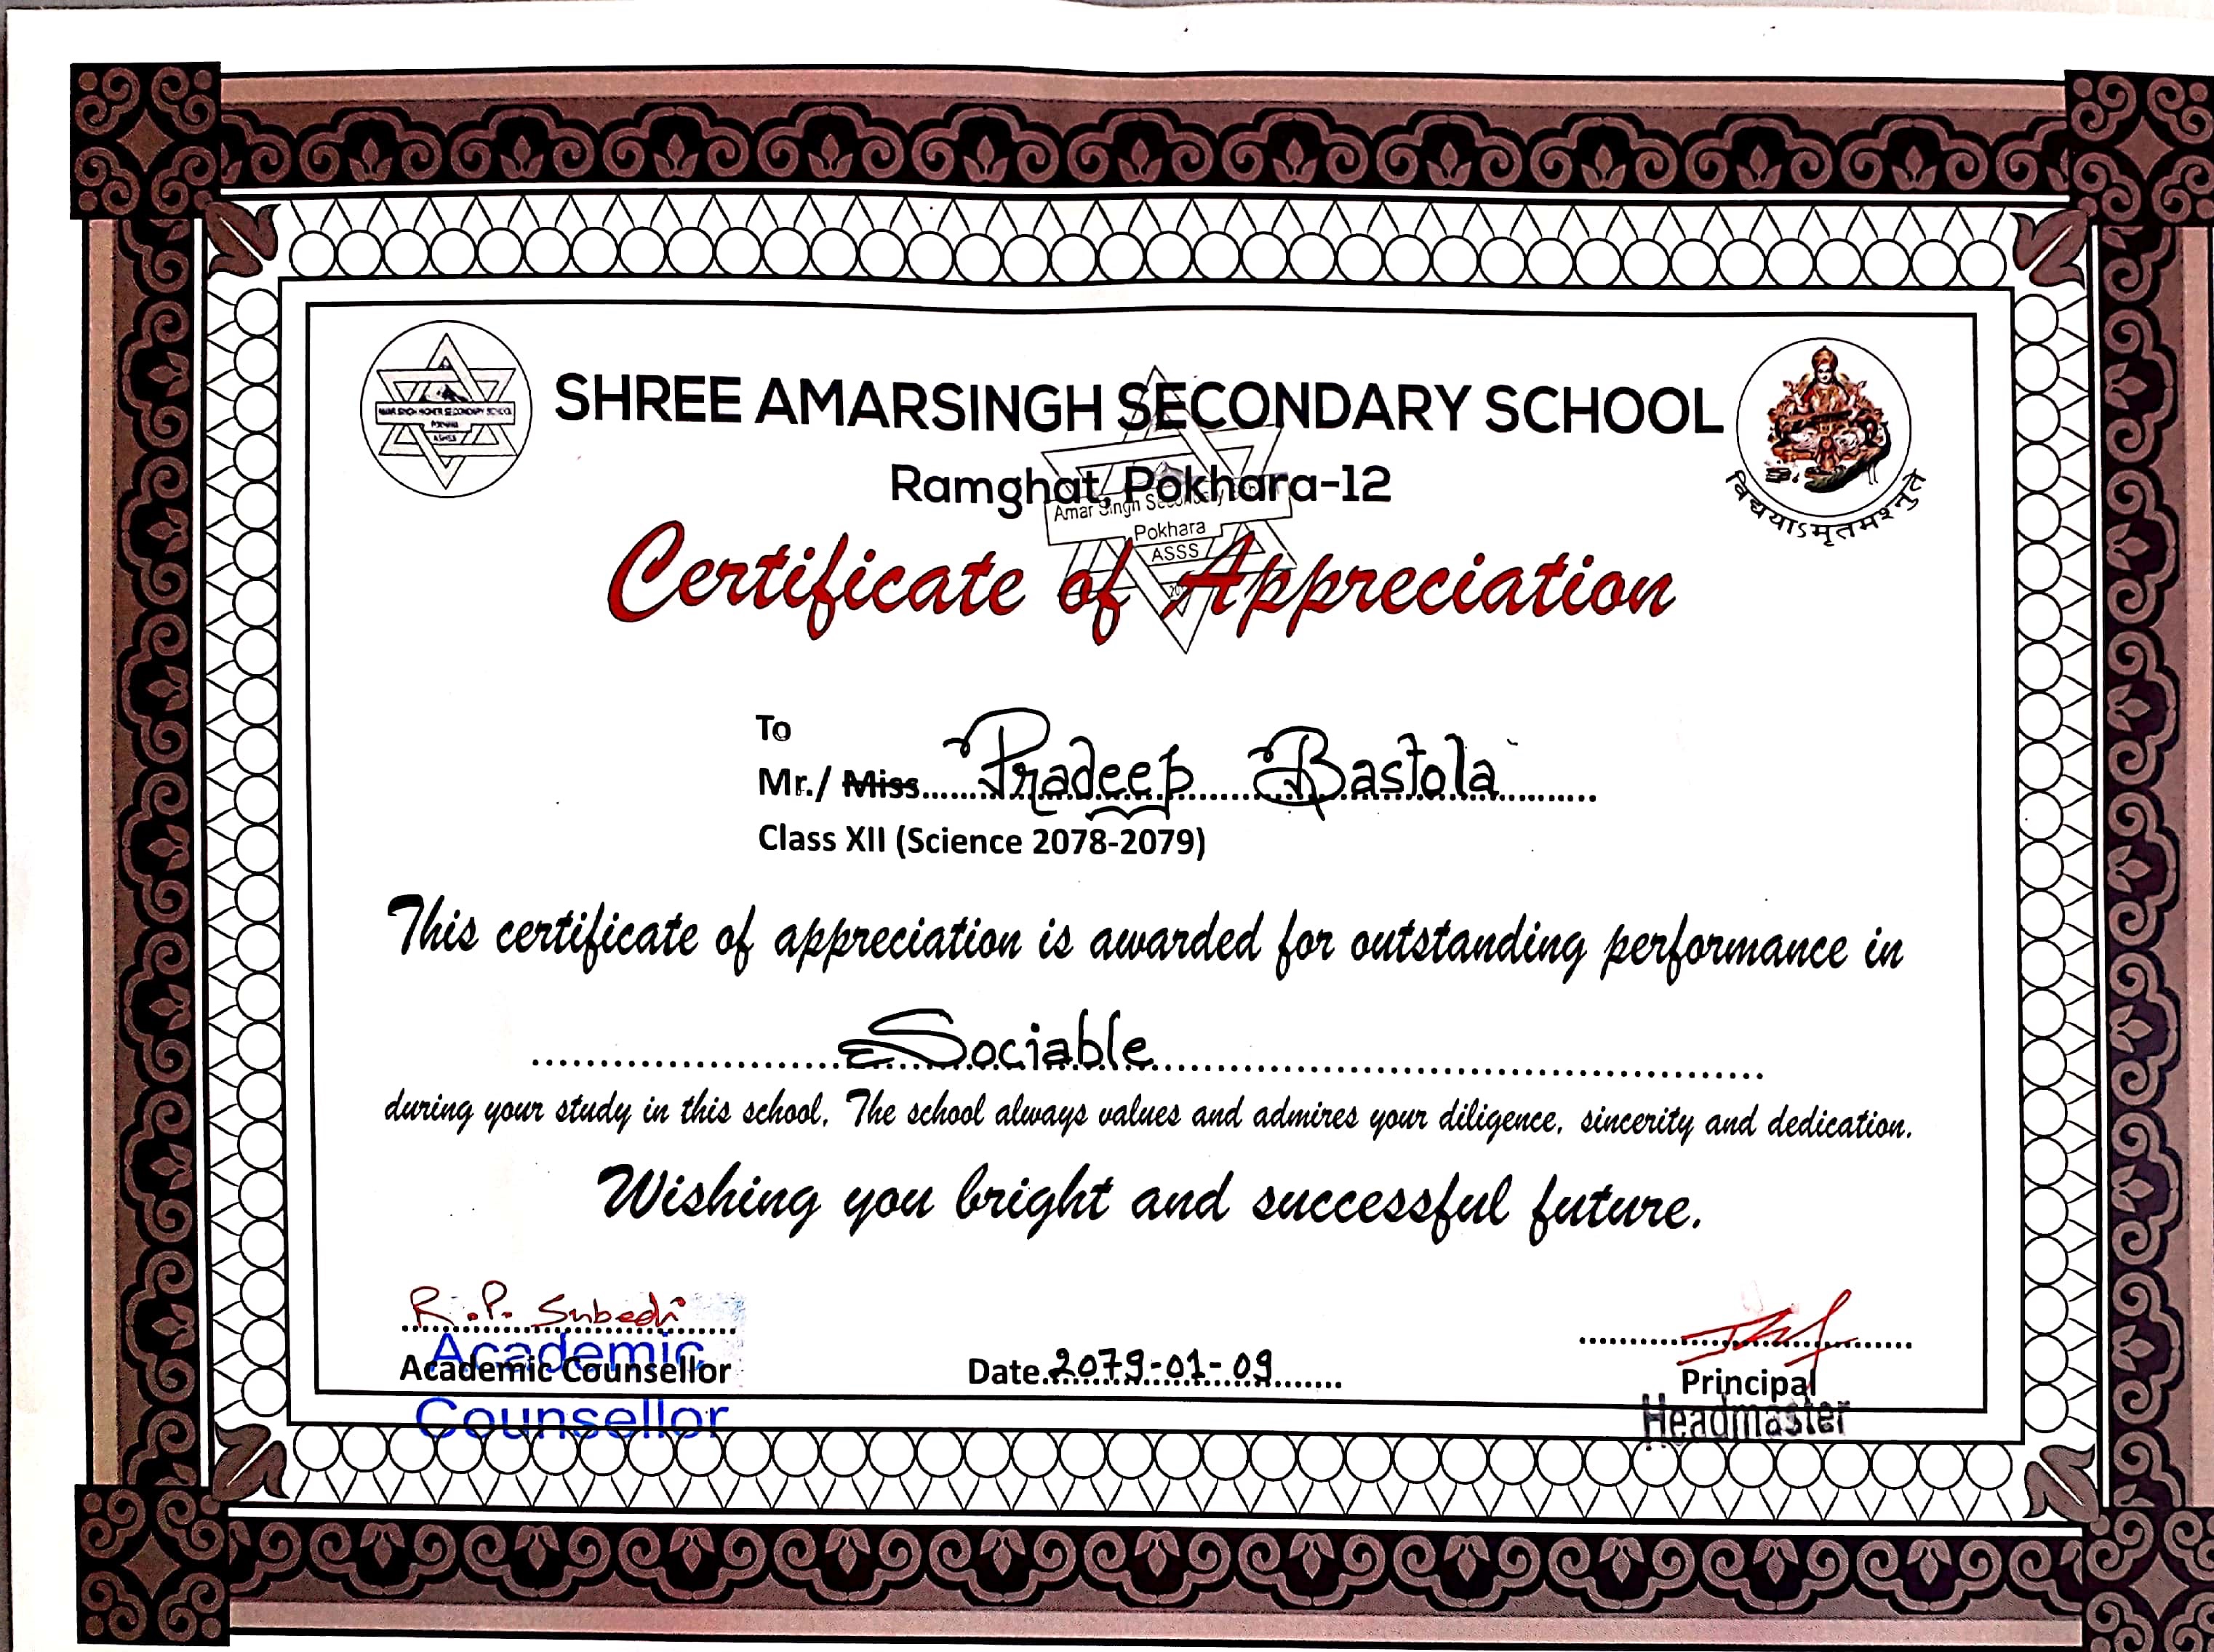 AMAR SINGH HIGHER SECONDARY SCHOOL
POKHARA
ASHSS
SHREE AMARSINGH SECONDARY SCHOOL
Ramghat, Pokhara-12
विद्ययाऽमृतमश्नुते
Amar Singh Secondary School
Pokhara
ASSS
Certificate of Appreciation
To
Mr./ Miss Pradeep Bastola
Class XII (Science 2078-2079)
This certificate of appreciation is awarded for outstanding performance in
Sociable
during your study in this school. The school always values and admires your diligence, sincerity and dedication.
Wishing you bright and successful future.
R.P. Subedi
Academic Counsellor
Academic
Counsellor
Date 2079-01-09
Principal
Headmaster